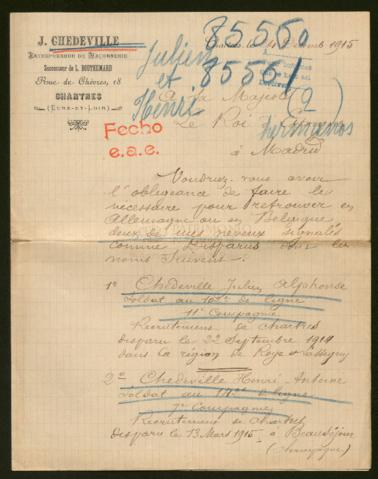 J. CHEDEVILLE
ENTREPRENEUR DE MAÇONNERIE
Successeur de L. BOUTHEMARD
Rue de Chèvres, 18
CHARTRES
(EURE-ET-LOIR)
85560
85561
Julien
et
Henri
(2
hermanos
1915
Fecho
e.a.e.
Sa Majesté
Le Roi
à Madrid
Voudriez-vous avoir
l'obligeance de faire le
nécessaire pour retrouver en
Allemagne ou en Belgique
deux de mes neveux signalés
comme Disparus
noms suivent:
1° Chedeville Julien Alphonse
Soldat au de ligne
11e Compagnie
Recrutement de Chartres
disparu le 22 Septembre 1914
dans la région de Roye Lassigny
2° Chedeville Henri Antoine
Soldat au de ligne
7e Compagnie
Recrutement de Chartres
disparu le 13 Mars 1915 à Beauséjour